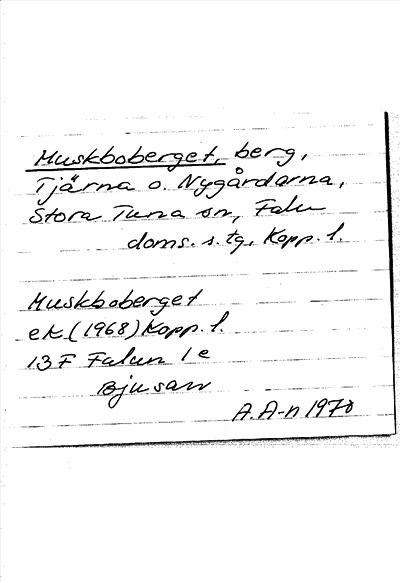 Muskboberget, berg,
Tjärna o. Nygårdarna,
Stora Tuna sn, Falu
doms. s. tg, Kopp. l.
Muskboberget
ek (1968) Kopp. l.
13F Falun 1e
Bjusaw
A. A-n 1970